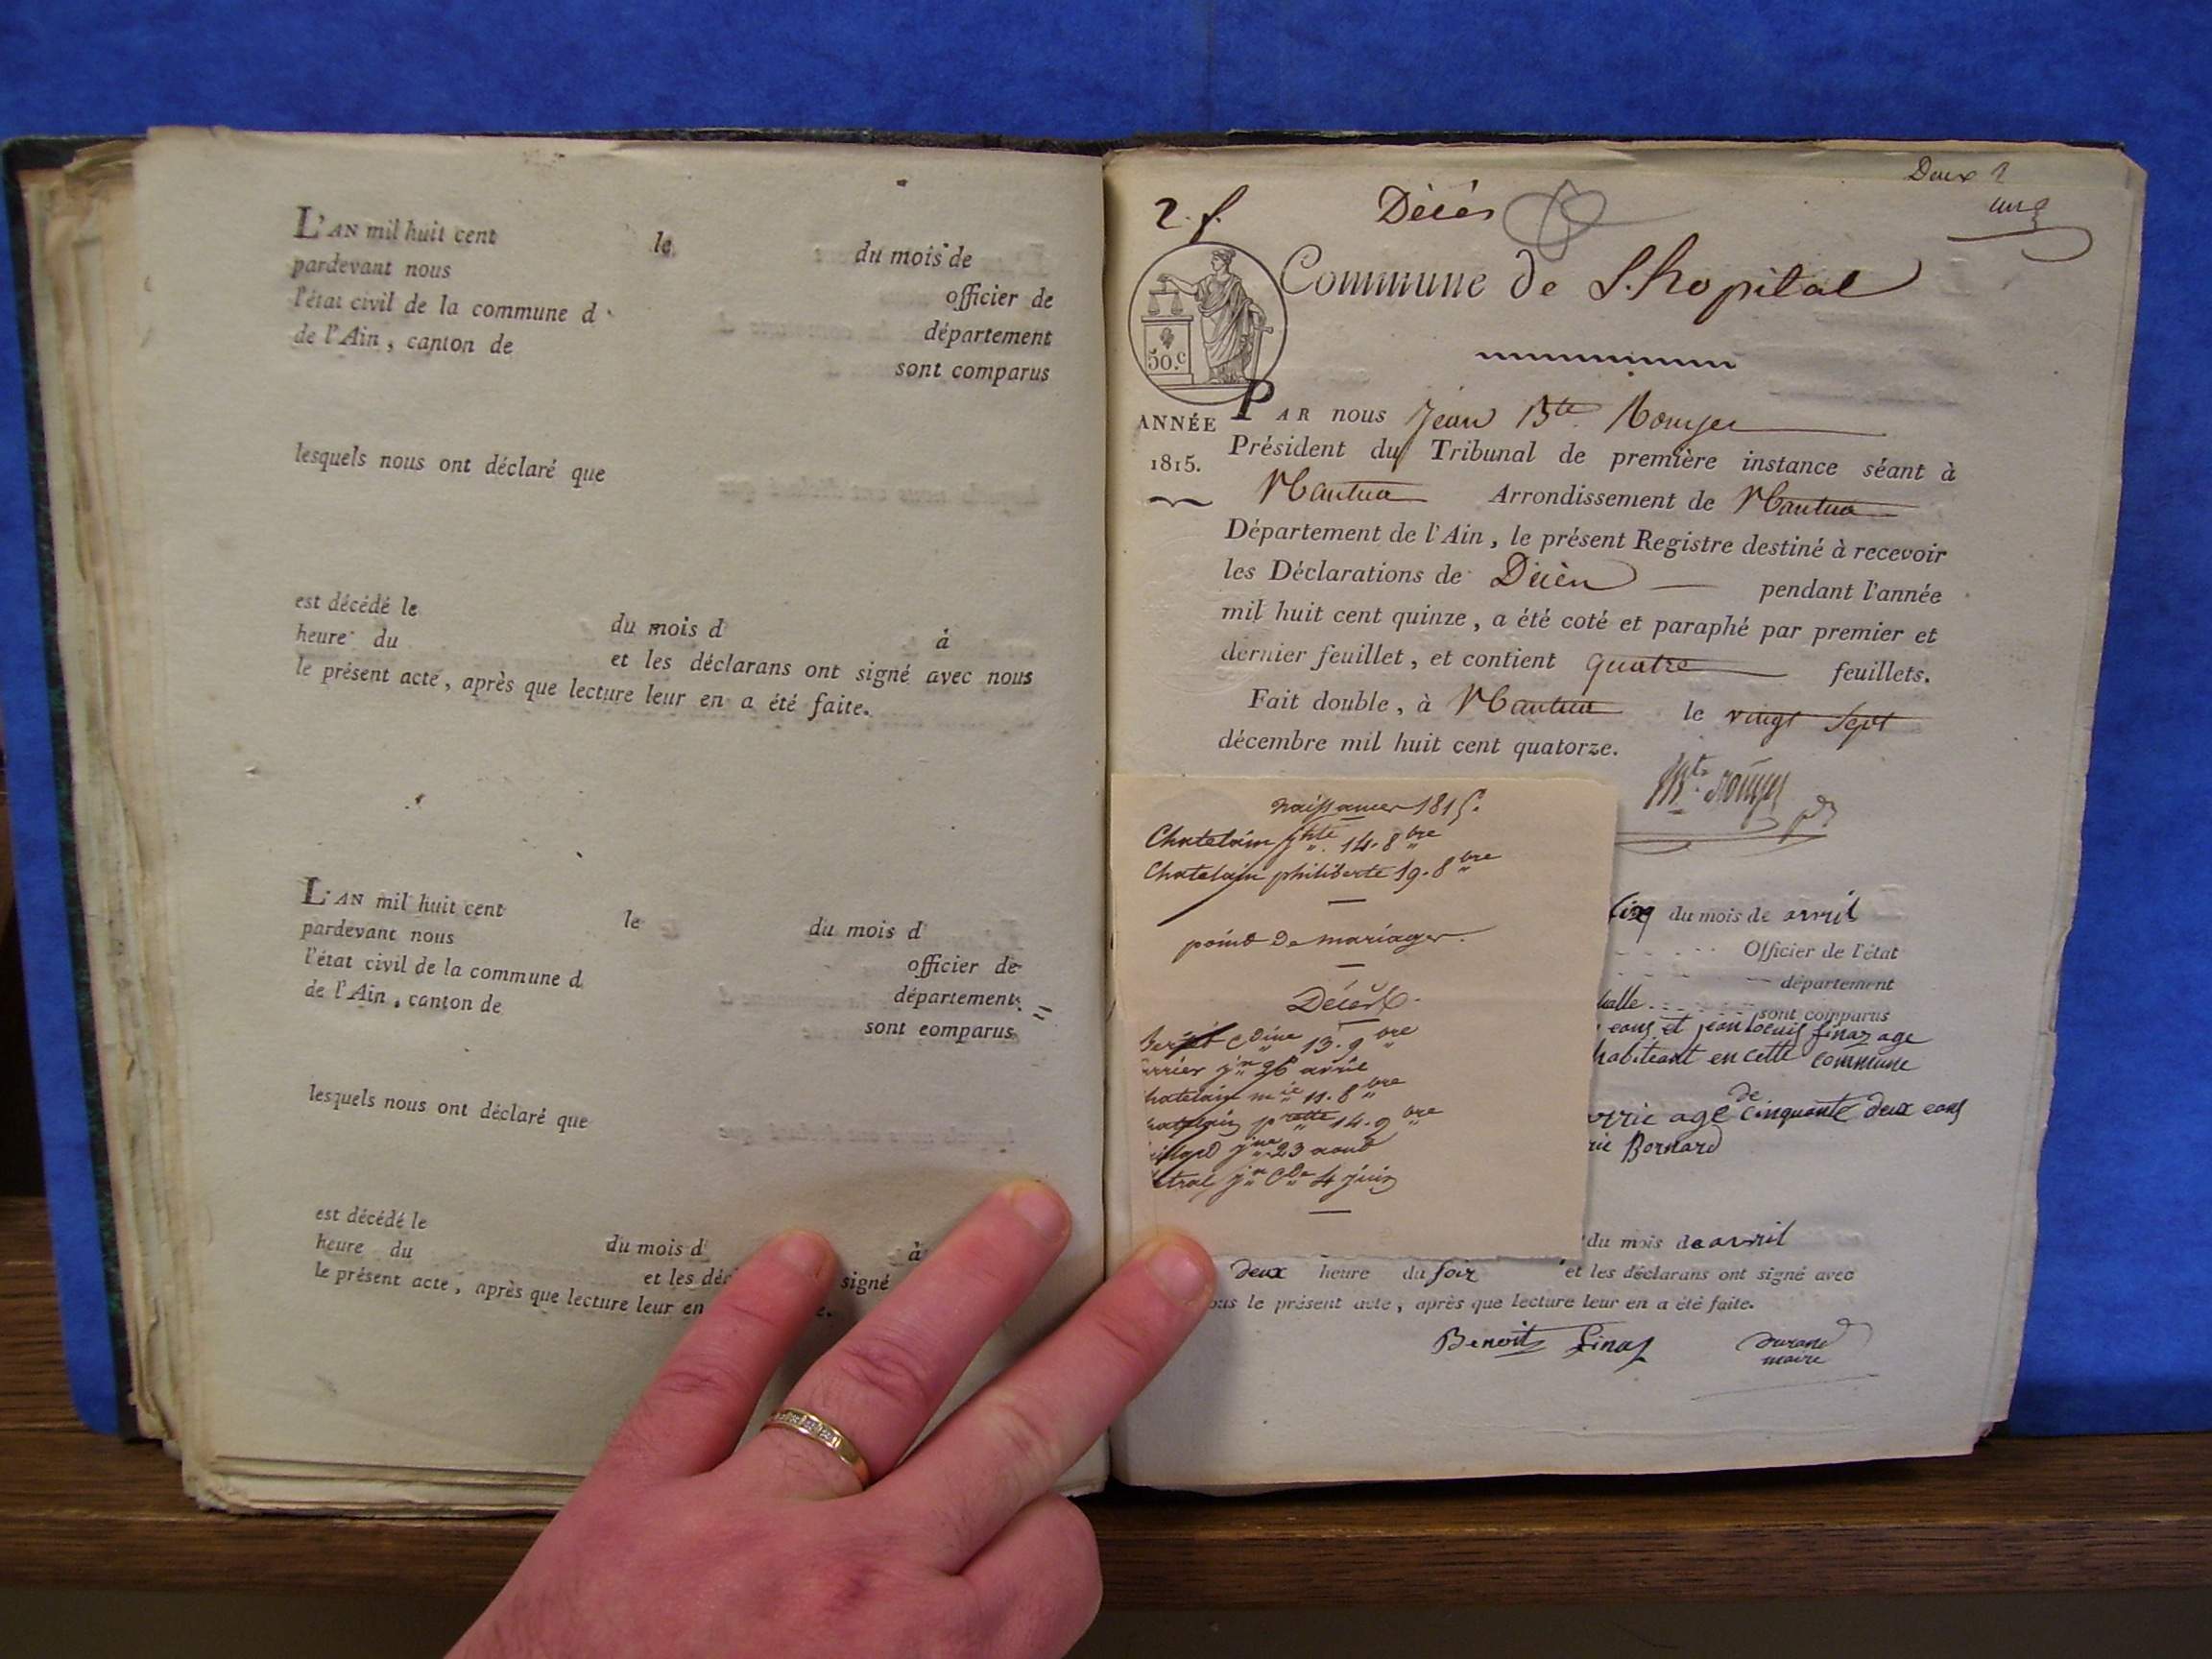 L'AN mil huit cent le du mois de
pardevant nous officier de
l'état civil de la commune d département
de l'Ain, canton de sont comparus
lesquels nous ont déclaré que
est décédé le du mois d à
heure du et les déclarans ont signé avec nous
le présent acte, après que lecture leur en a été faite.
L'AN mil huit cent le du mois d
pardevant nous officier de
l'état civil de la commune d département
de l'Ain, canton de sont comparus
lesquels nous ont déclaré que
est décédé le du mois d à
heure du et les déc signé
le présent acte, après que lecture leur en e.
Deux
2. f. Décès
Commune de L'hopital
50.c
ANNÉE
1815.
PAR nous Jean Bte. Rouyer
Président du Tribunal de première instance séant à
Nantua Arrondissement de Nantua
Département de l'Ain, le présent Registre destiné à recevoir
les Déclarations de Décès pendant l'année
mil huit cent quinze, a été coté et paraphé par premier et
dernier feuillet, et contient quatre feuillets.
Fait double, à Nantua le vingt sept
décembre mil huit cent quatorze.
naissances 1815.
Chatelain 14. 8bre
Chatelain philiberte 19. 8bre
point de mariages.
Décès.
Cdine 13. 9bre
jn 26 avril
hatelain mie 11. 8bre
hatelain 14. 9bre
jne 23 aout
etral jn Cde 4 juin
cinq du mois de avril
Officier de l'état
département
halle sont comparus
eans et jean louis finaz age
habiteant en cette commune
orrie age de cinquante deux eans
rie Bornard
du mois de avril
deux heure du soir et les déclarans ont signé avec
ous le présent acte, après que lecture leur en a été faite.
Benoit finaz Durand
maire